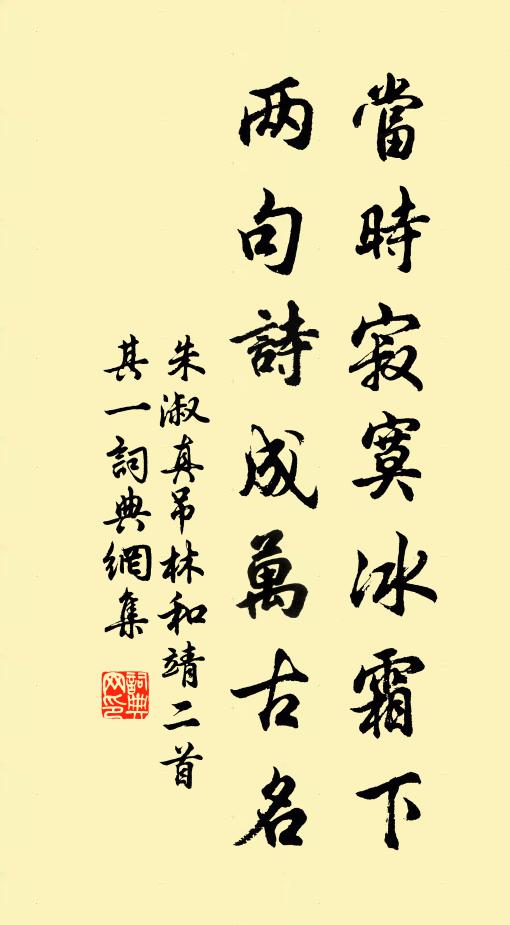 當時寂寞冰霜下
两句詩成萬古名
朱淑真吊林和靖二首
其一詞典網集
詞典
网印